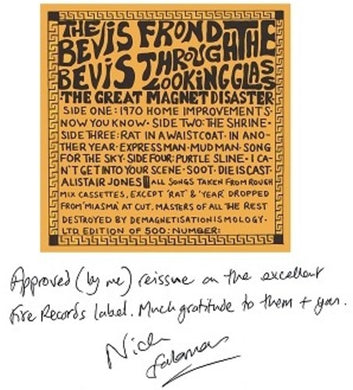 THE BEVIS FROND THE
BEVIS THROUGH THE
LOOKING GLASS
·THE GREAT MAGNET DISASTER·
SIDE ONE: 1970 HOME IMPROVEMENTS·
NOW YOU KNOW· SIDE TWO: THE SHRINE·
SIDE THREE: RAT IN A WAISTCOAT· IN ANO-
THER YEAR· EXPRESS MAN· MUD MAN· SONG
FOR THE SKY· SIDE FOUR: PURTLE SLINE· I CA-
N'T GET INTO YOUR SCENE· SOOT· DIE IS CAST·
ALISTAIR JONES ALL SONGS TAKEN FROM ROUGH
MIX CASSETTES, EXCEPT 'RAT' & 'YEAR' DROPPED
FROM 'MIASMA' AT CUT. MASTERS OF ALL THE REST
DESTROYED BY DEMAGNETISATION ISMOLOGY·
LTD EDITION OF 500: NUMBER:
Approved (by me) reissue on the excellent
Fire Records label. Much gratitude to them + you.
Nick
Saloman